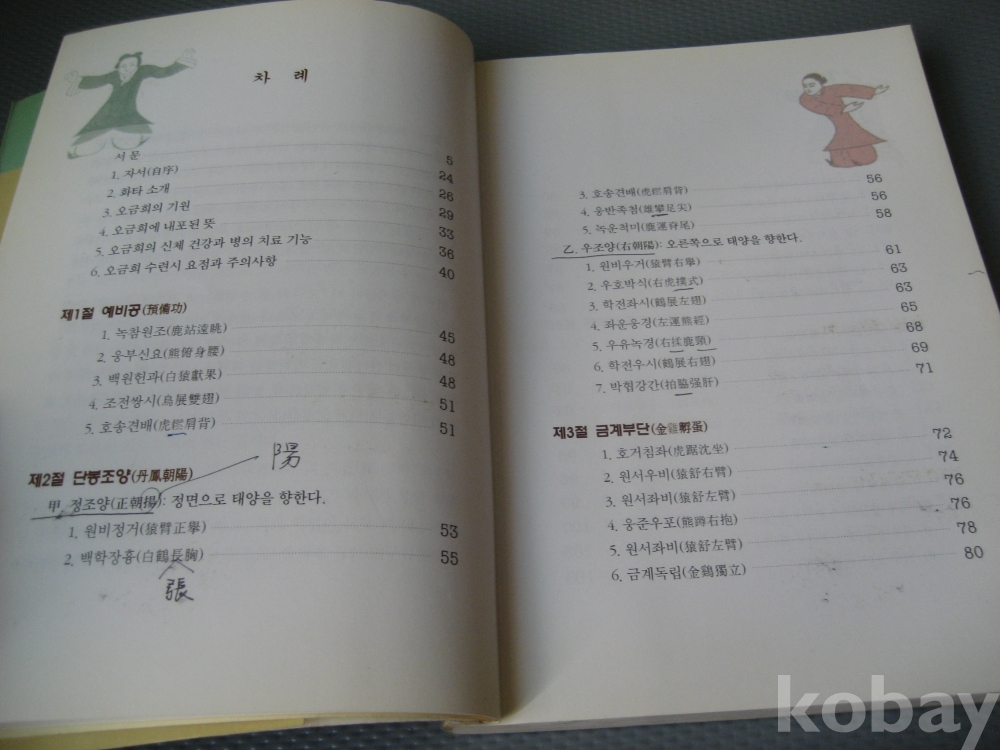 차 례
서문 5
1. 자서(自序) 24
2. 화타 소개 26
3. 오금희의 기원 29
4. 오금희에 내포된 뜻 33
5. 오금희의 신체 건강과 병의 치료 기능 36
6. 오금희 수련시 요점과 주의사항 40
제1절 예비공(預備功)
1. 녹참원조(鹿站遠眺) 45
2. 웅부신요(熊俯身腰) 48
3. 백원헌과(白猿獻果) 48
4. 조전쌍시(鳥展雙翅) 51
5. 호송견배(虎㧐肩背) 51
陽
제2절 단봉조양(丹鳳朝陽)
甲. 정조양(正朝揚): 정면으로 태양을 향한다.
1. 원비정거(猿臂正擧) 53
2. 백학장흉(白鶴長胸) 55
張
3. 호송견배 56
4. 웅반족첨(雄攀足尖) 56
5. 녹운척미(鹿運脊尾) 58
乙. 우조양(右朝陽): 오른쪽으로 태양을 향한다.
1. 원비우거(猿臂右擧) 61
2. 우호박식(右虎撲式) 63
3. 학전좌시(鶴展左翅) 63
4. 좌운웅경(左運熊經) 65
5. 우유녹경(右揉鹿頸) 68
6. 학전우시(鶴展右翅) 69
7. 박협강간(拍脇强肝) 71
제3절 금계부단(金雞孵蛋)
1. 호거침좌(虎踞沈坐) 72
2. 원서우비(猿舒右臂) 74
3. 원서좌비(猿舒左臂) 76
4. 웅준우포(熊蹲右抱) 76
5. 원서좌비(猿舒左臂) 78
6. 금계독립(金鷄獨立) 80
kobay